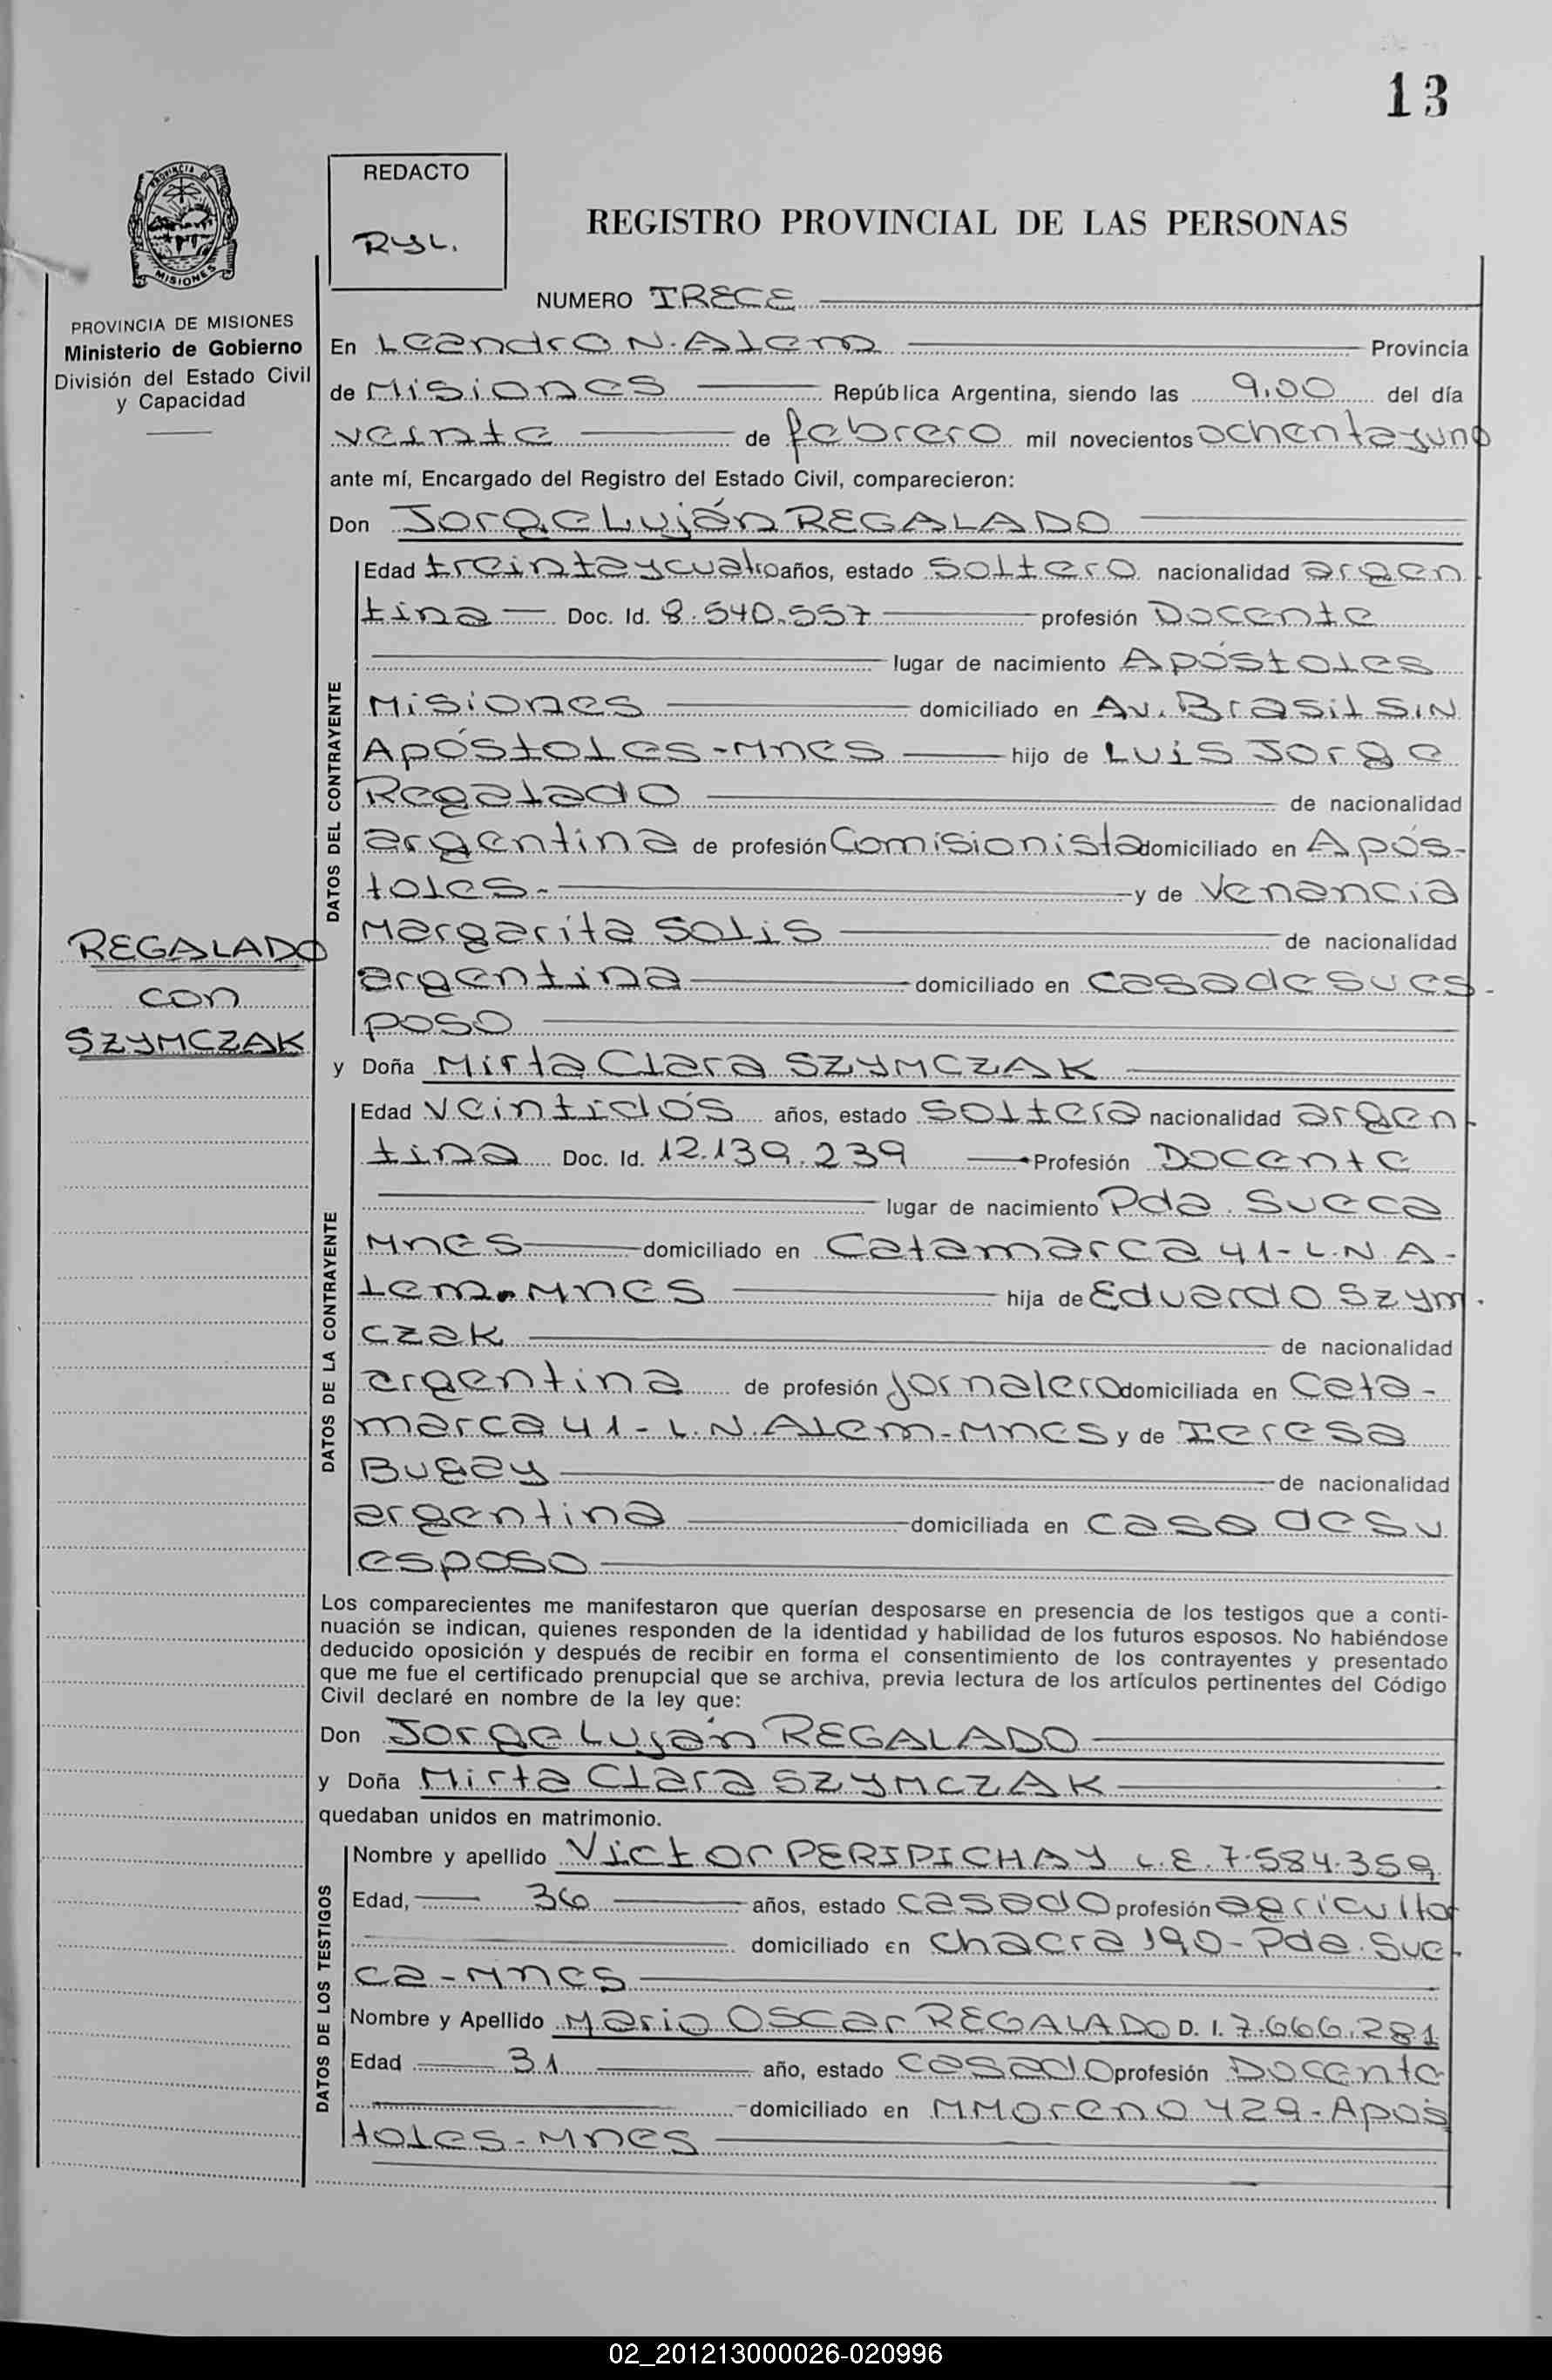 13
PROVINCIA DE
MISIONES
PROVINCIA DE MISIONES
Ministerio de Gobierno
División del Estado Civil
y Capacidad
REDACTO
RYL.
REGISTRO PROVINCIAL DE LAS PERSONAS
NUMERO TRECE
En Leandro N. Alem Provincia
de Misiones República Argentina, siendo las 9,00 del día
veinte de febrero mil novecientos ochenta y uno
ante mí, Encargado del Registro del Estado Civil, comparecieron:
Don Jorge Luján REGALADO
DATOS DEL CONTRAYENTE
Edad treinta y cuatro años, estado soltero nacionalidad argen
tina Doc. Id. 8.540.557 profesión Docente
lugar de nacimiento Apóstoles
Misiones domiciliado en Av. Brasil S/N
Apóstoles-Mnes hijo de Luis Jorge
Regalado de nacionalidad
argentina de profesión Comisionista domiciliado en Após-
toles.- y de Venancia
Margarita Solis de nacionalidad
argentina domiciliado en casa de su es-
poso
REGALADO
con
SZYMCZAK
y Doña Mirta Clara SZYMCZAK
DATOS DE LA CONTRAYENTE
Edad veintidós años, estado soltera nacionalidad argen-
tina Doc. Id. 12.139.239 Profesión Docente
lugar de nacimiento Pda. Sueca
Mnes domiciliado en Catamarca 41-L.N.A-
lem.Mnes hija de Eduardo Szym-
czak de nacionalidad
argentina de profesión jornalero domiciliada en Cata-
marca 41-L.N.Alem-Mnes y de Teresa
Bugay de nacionalidad
argentina domiciliada en casa de su
esposo
Los comparecientes me manifestaron que querían desposarse en presencia de los testigos que a conti-
nuación se indican, quienes responden de la identidad y habilidad de los futuros esposos. No habiéndose
deducido oposición y después de recibir en forma el consentimiento de los contrayentes y presentado
que me fue el certificado prenupcial que se archiva, previa lectura de los artículos pertinentes del Código
Civil declaré en nombre de la ley que:
Don Jorge Luján REGALADO
y Doña Mirta Clara SZYMCZAK
quedaban unidos en matrimonio.
DATOS DE LOS TESTIGOS
Nombre y apellido Victor PERIPICHAY L.E. 7.584.359
Edad, 36 años, estado casado profesión agricultor
domiciliado en chacra 190-Pda. Sue-
ca-Mnes
Nombre y Apellido Mario Oscar REGALADO D.I. 7.666.281
Edad 31 año, estado casado profesión Docente
domiciliado en M Moreno 429-Após
toles-Mnes
02_201213000026-020996